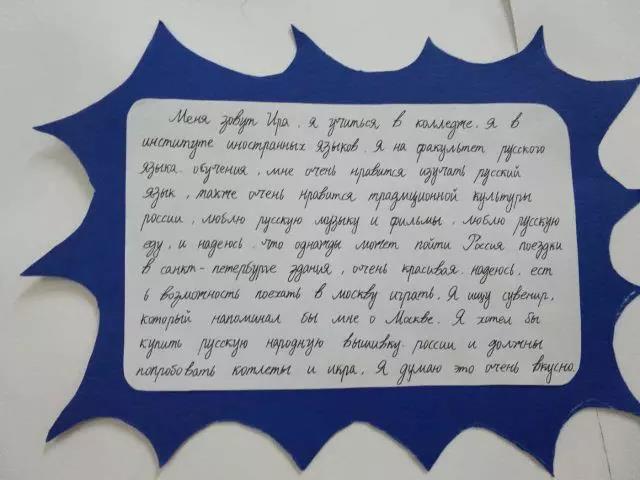 Меня зовут Ира. я учиться в колледже. Я в
институте иностранных языков. Я на факультет русского
языка. обучения, мне очень нравится изучать русский
язык, также очень нравится традиционной культуры
россии, люблю русскую музыку и фильмы. люблю русскую
еду, и надеюсь. что однажды может пойти Россия поездки
в санкт-петербурге здания, очень красивая. надеюсь, ест
ь возможность поехать в москву играть. Я ищу сувенир,
который напоминал бы мне о Москве. Я хотел бы
купить русскую народную вышивку. россии и должны
попробовать котлеты и икра, Я думаю это очень вкусно.